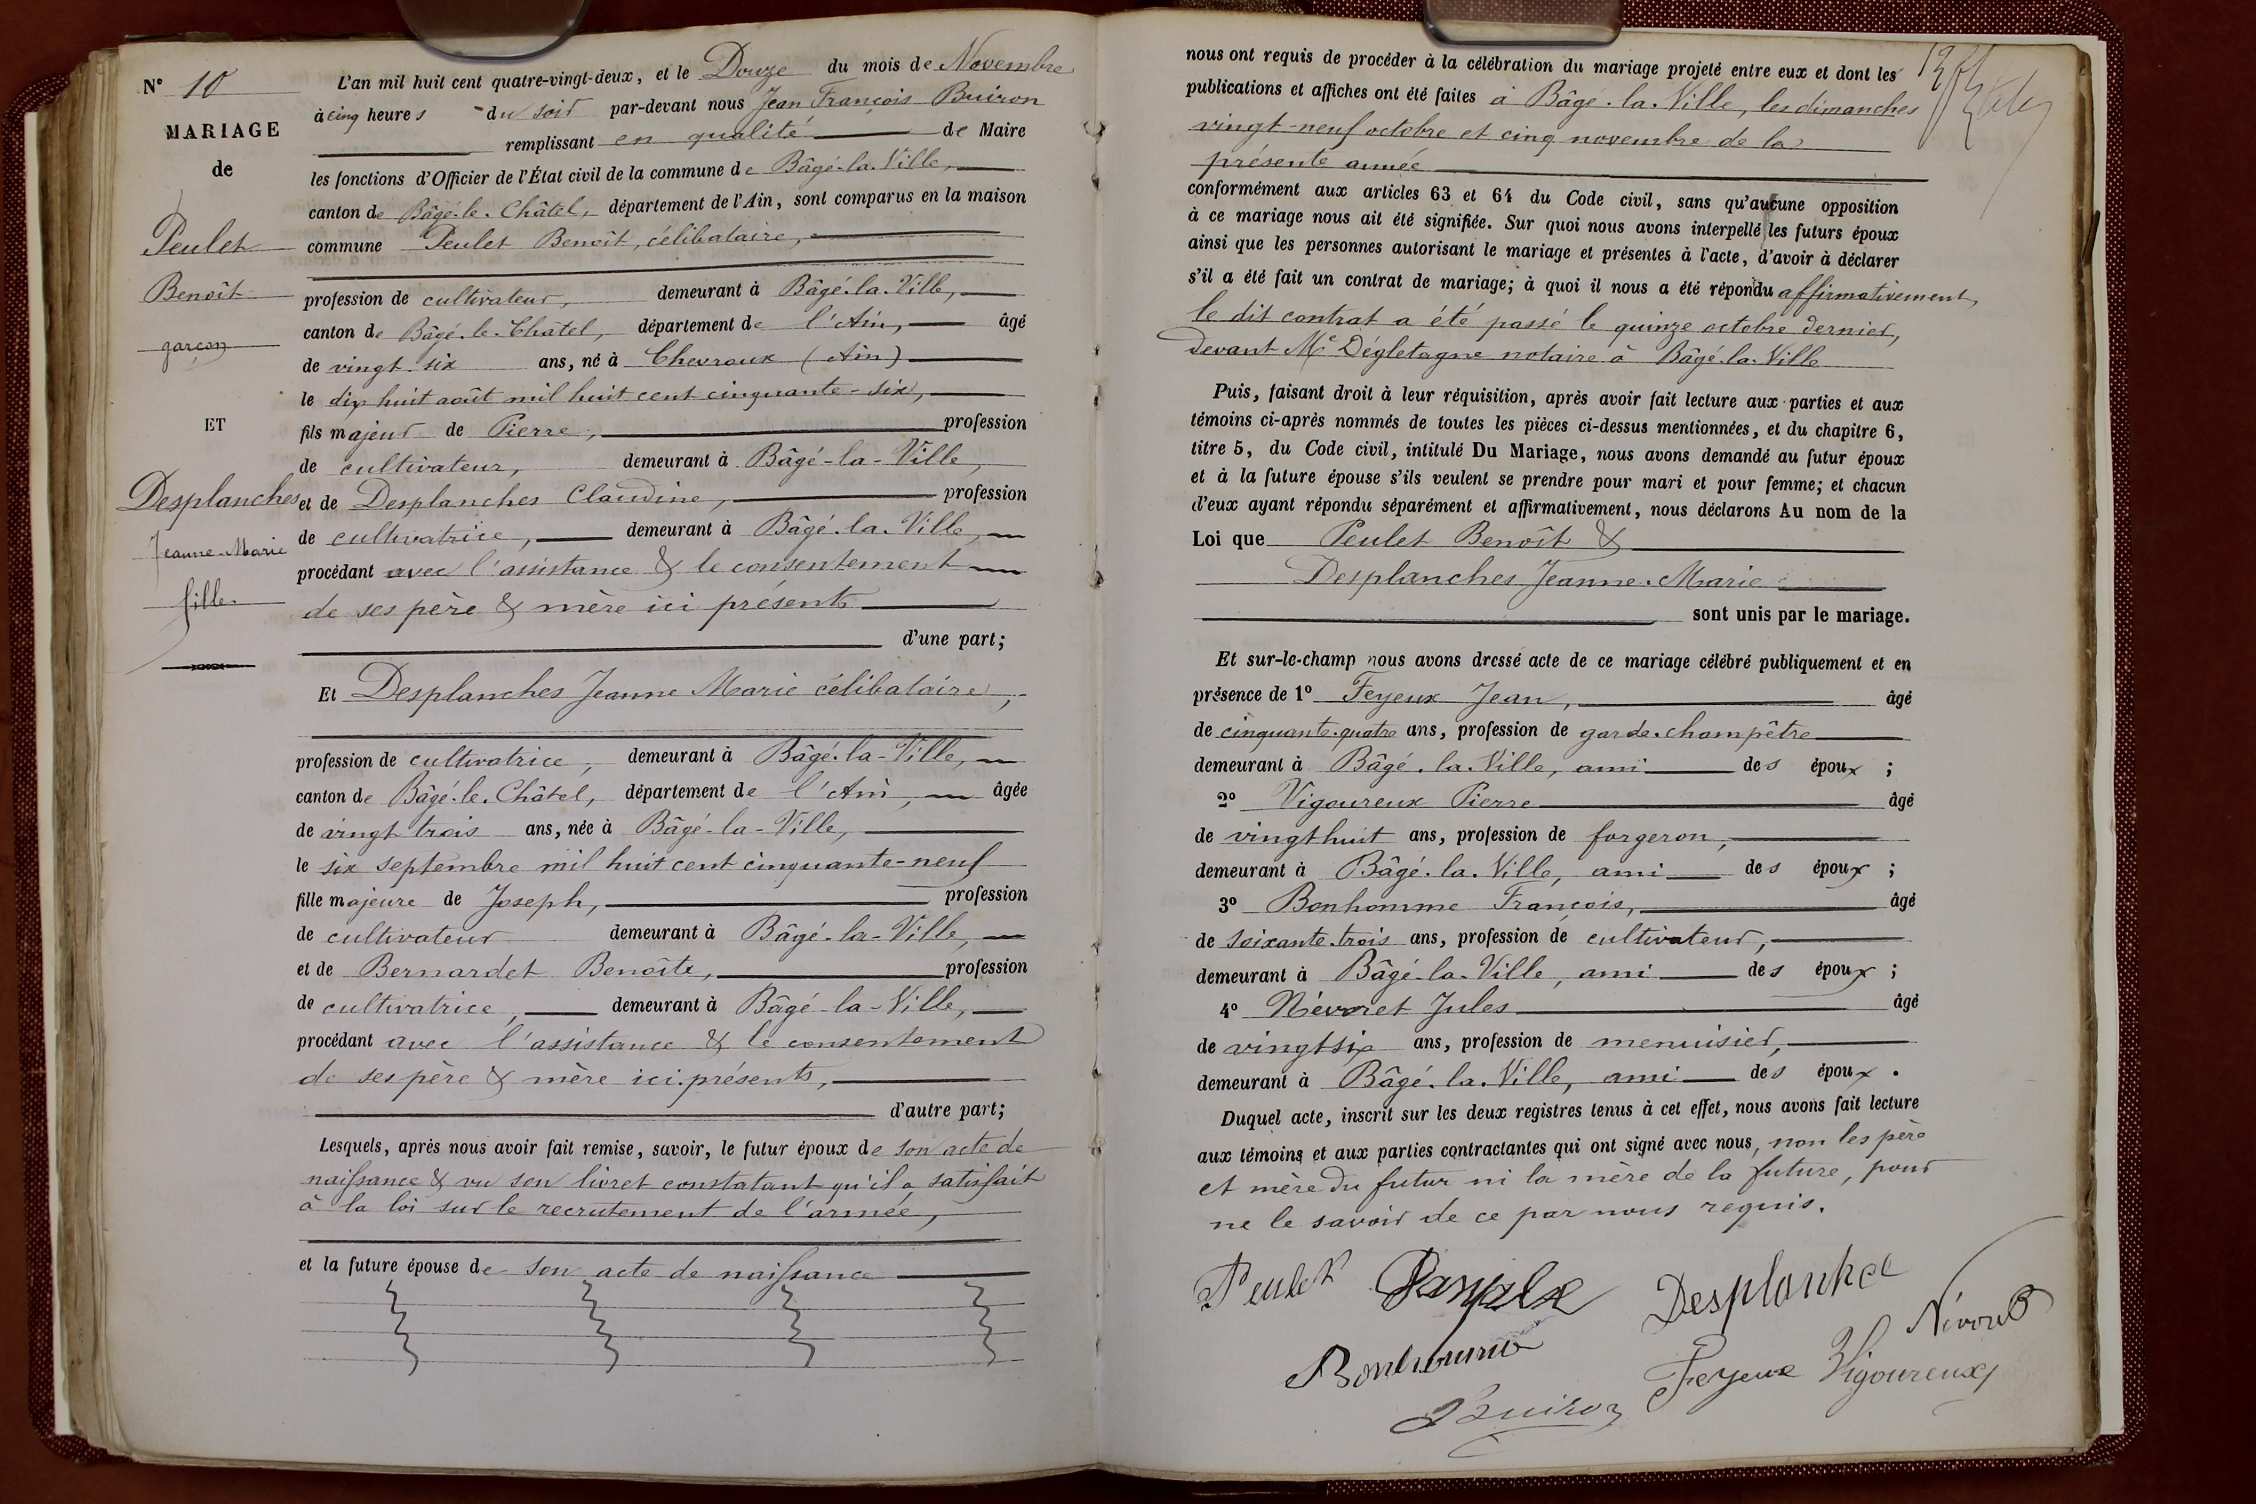 N° 10
MARIAGE
de
Peulet
Benoît
garçon
ET
Desplanches
Jeanne-Marie
fille
L'an mil huit cent quatre-vingt-deux, et le Douze du mois de Novembre
à cinq heures du soir par-devant nous Jean François Buiron
remplissant en qualité de Maire
les fonctions d'Officier de l'État civil de la commune de Bâgé-la-Ville,
canton de Bâgé-le-Châtel, département de l'Ain, sont comparus en la maison
commune Peulet Benoît, célibataire,
profession de cultivateur, demeurant à Bâgé-la-Ville,
canton de Bâgé-le-Châtel, département de l'Ain, âgé
de vingt-six ans, né à Chevroux (Ain)
le dix huit août mil huit cent cinquante-six,
fils majeur de Pierre, profession
de cultivateur, demeurant à Bâgé-la-Ville,
et de Desplanches Claudine, profession
de cultivatrice, demeurant à Bâgé-la-Ville,
procédant avec l'assistance & le consentement
de ses père & mère ici présents
d'une part;
Et Desplanches Jeanne Marie célibataire,
profession de cultivatrice, demeurant à Bâgé-la-Ville,
canton de Bâgé-le-Châtel, département de l'Ain, âgée
de vingt trois ans, née à Bâgé-la-Ville,
le six septembre mil huit cent cinquante-neuf
fille majeure de Joseph, profession
de cultivateur demeurant à Bâgé-la-Ville,
et de Bernardet Benoîte, profession
de cultivatrice, demeurant à Bâgé-la-Ville,
procédant avec l'assistance & le consentement
de ses père & mère ici présents,
d'autre part;
Lesquels, après nous avoir fait remise, savoir, le futur époux de son acte de
naissance & vu son livret constatant qu'il a satisfait
à la loi sur le recrutement de l'armée,
et la future épouse de son acte de naissance
nous ont requis de procéder à la célébration du mariage projeté entre eux et dont les
publications et affiches ont été faites à Bâgé-la-Ville, les dimanches
vingt-neuf octobre et cinq novembre de la
présente année
conformément aux articles 63 et 64 du Code civil, sans qu'aucune opposition
à ce mariage nous ait été signifiée. Sur quoi nous avons interpellé les futurs époux
ainsi que les personnes autorisant le mariage et présentes à l'acte, d'avoir à déclarer
s'il a été fait un contrat de mariage; à quoi il nous a été répondu affirmativement,
le dit contrat a été passé le quinze octobre dernier,
devant Me Dégletagne notaire à Bâgé-la-Ville
Puis, faisant droit à leur réquisition, après avoir fait lecture aux parties et aux
témoins ci-après nommés de toutes les pièces ci-dessus mentionnées, et du chapitre 6,
titre 5, du Code civil, intitulé Du Mariage, nous avons demandé au futur époux
et à la future épouse s'ils veulent se prendre pour mari et pour femme; et chacun
d'eux ayant répondu séparément et affirmativement, nous déclarons Au nom de la
Loi que Peulet Benoît &
Desplanches Jeanne-Marie
sont unis par le mariage.
Et sur-le-champ nous avons dressé acte de ce mariage célébré publiquement et en
présence de 1° Feyeux Jean, âgé
de cinquante-quatre ans, profession de garde-champêtre
demeurant à Bâgé-la-Ville, ami des époux;
2° Vigoureux Pierre âgé
de vingt huit ans, profession de forgeron,
demeurant à Bâgé-la-Ville, ami des époux;
3° Bonhomme François, âgé
de soixante-trois ans, profession de cultivateur,
demeurant à Bâgé-la-Ville, ami des époux;
4° Névoret Jules âgé
de vingt six ans, profession de menuisier,
demeurant à Bâgé-la-Ville, ami des époux.
Duquel acte, inscrit sur les deux registres tenus à cet effet, nous avons fait lecture
aux témoins et aux parties contractantes qui ont signé avec nous, non les père
et mère du futur ni la mère de la future, pour
ne le savoir de ce par nous requis.
Peulet Desplanche
Névoret
Bonhomme Feyeux Vigoureux
Buiron